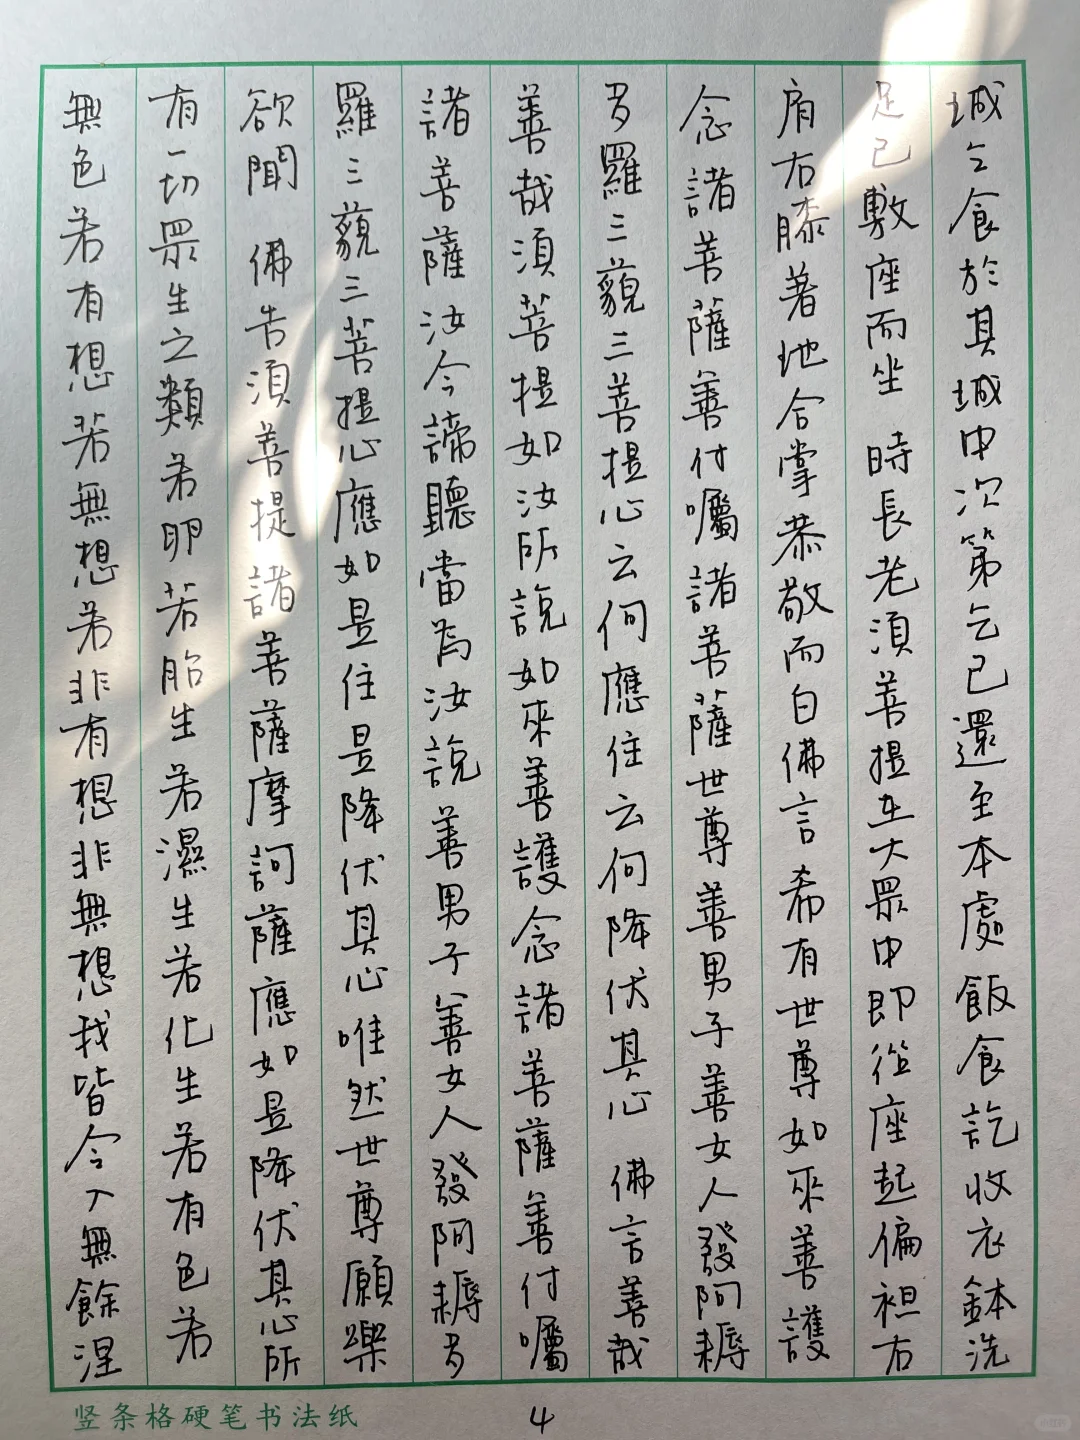 城乞食於其城中次第乞已還至本處飯食訖收衣鉢洗
足已敷座而坐 時長老須菩提在大眾中即從座起偏袒右
肩右膝著地合掌恭敬而白佛言希有世尊如來善護
念諸菩薩善付囑諸菩薩世尊善男子善女人發阿耨
多羅三藐三菩提心云何應住云何降伏其心 佛言善哉
善哉須菩提如汝所說如來善護念諸菩薩善付囑
諸菩薩汝今諦聽當為汝說善男子善女人發阿耨多
羅三藐三菩提心應如是住是降伏其心唯然世尊願樂
欲聞 佛告須菩提諸菩薩摩訶薩應如是降伏其心所
有一切眾生之類若卵若胎生若濕生若化生若有色若
無色若有想若無想若非有想非無想我皆令入無餘涅
竖条格硬笔书法纸
4
小红书